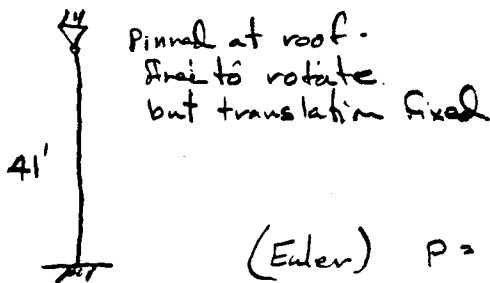 Pinned at roof.
Free to rotate
but translation fixed
41'
(Euler) P =